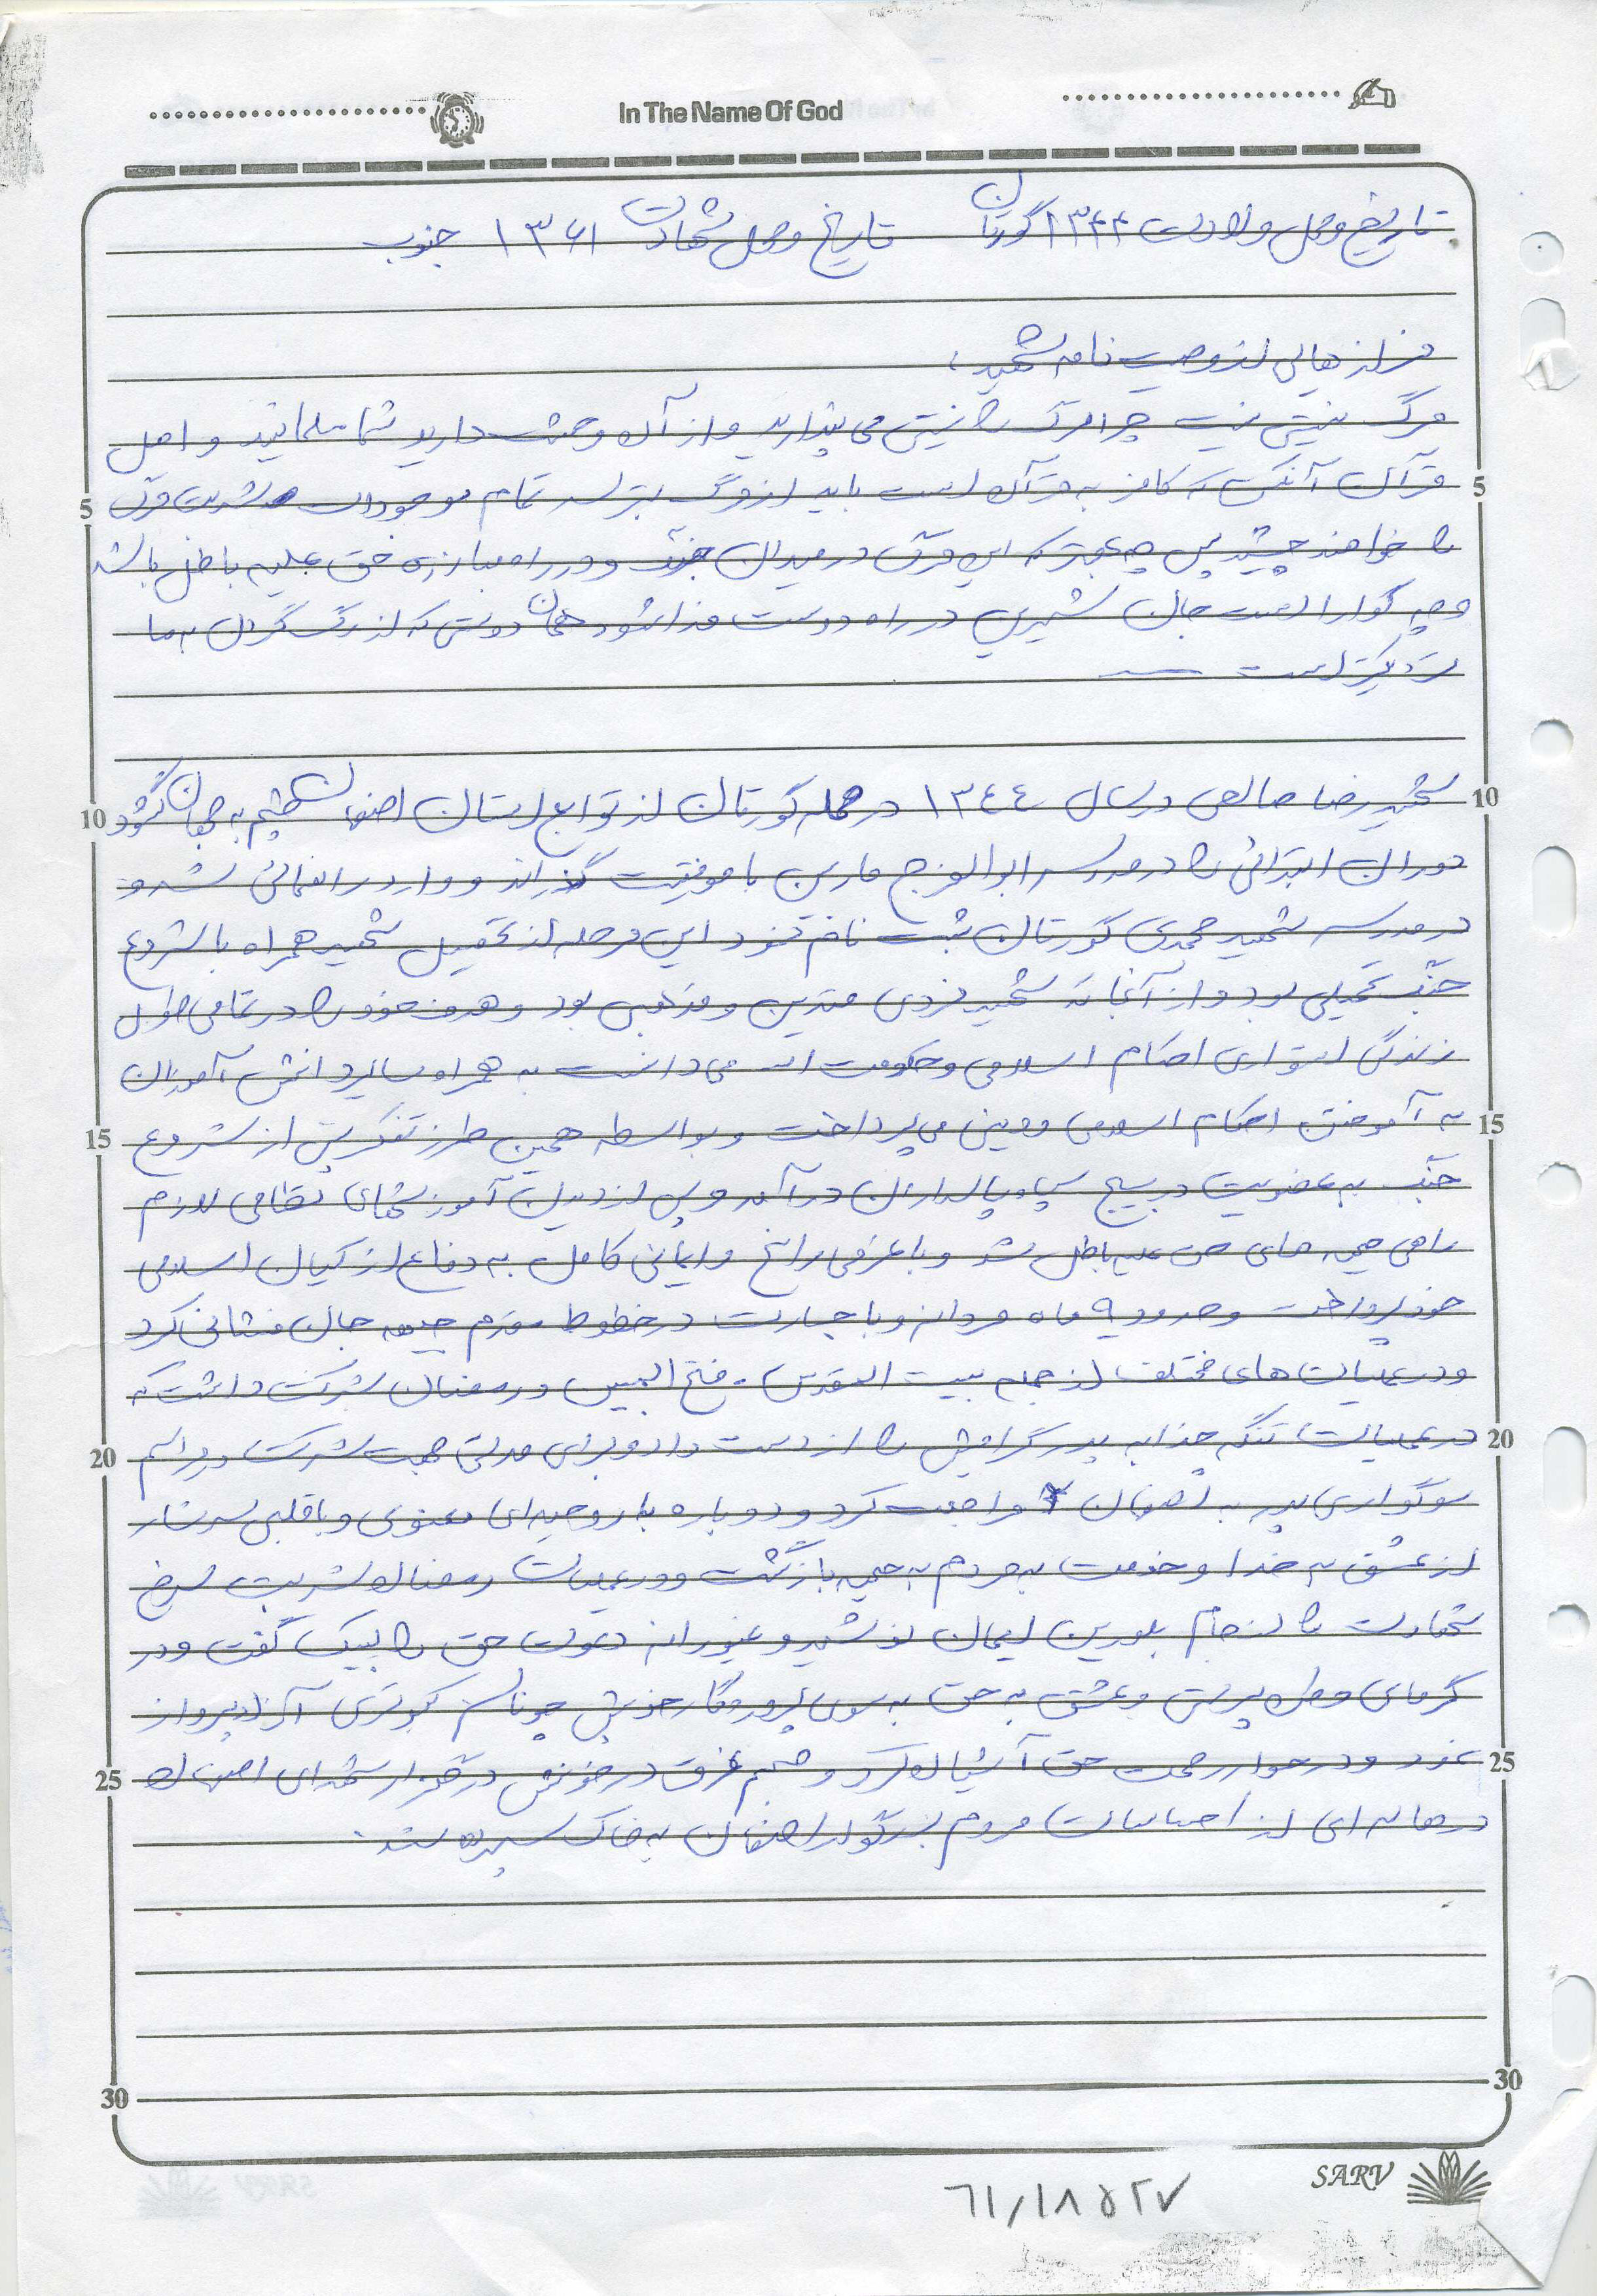 In The Name Of God
تاریخ و محل ولادت ۱۳۴۴ گورتان تاریخ و محل شهادت ۱۳۶۱ جنوب
فرازهایی از وصیت نامه شهید:
مرگ نیستی نیست چرا مرگ را نیستی می پندارید و از آن وحشت دارید شما مسلمانید و اهل
5 قرآن آنکس که کافر به قرآن است باید از مرگ بترسد تمام موجودات شربت مرگ 5
را خواهند چشید پس چه بهتر که این مرگ در میدان جنگ و در راه مبارزه حق علیه باطل باشد
و چه گوارا است جان شیرین در راه دوست فدا شود همان دوستی که از رگ گردن به ما
نزدیکتر است
10 شهید رضا صالحی در سال ۱۳٤٤ در محله گورتان از توابع استان اصفهان چشم به جهان گشود 10
دوران ابتدائی را در مدرسه ابوالفرج ماربین با موفقیت گذراند و وارد راهنمائی شد و
در مدرسه شهید محمدی گورتان ثبت نام نمود این مرحله از تحصیل شهید همراه با شروع
جنگ تحمیلی بود و از آنجا که شهید فردی متدین و مذهبی بود و هدف خود را در تمامی طول
زندگی استواری احکام اسلامی و حکومت الله می دانست به همراه سایر دانش آموزان
15 به آموختن احکام اسلامی و دینی می پرداخت و بواسطه همین طرز تفکر پس از شروع 15
جنگ به عضویت در بسیج سپاه پاسداران در آمد و پس از دیدن آموزشهای نظامی لازم
راهی جبهه های حق علیه باطل شد و با عزمی راسخ و ایمانی کامل به دفاع از کیان اسلامی
خود پرداخت و حدود ۹ ماه مردانه و با جسارت در خطوط مقدم جبهه جان فشانی کرد
و در عملیات های مختلف از جمله بیت المقدس - فتح المبین و رمضان شرکت داشت که
20 در عملیات تنگه چذابه پدر گرامیش را از دست داد و برای مدتی جهت شرکت در مراسم 20
سوگواری پدر به اصفهان مراجعت کرد و دوباره با روحیه ای معنوی و با قلبی سرشار
از عشق به خدا و خدمت به مردم به جبهه بازگشت و در عملیات رمضان شربت سرخ
شهادت را از جام بلورین ایمان نوشید و غیورانه دعوت حق را لبیک گفت و در
گرمای وطن پرستی و عشق به حق به سوی پروردگار خویش چونان کبوتری آزاد پرواز
25 نمود و در جوار رحمت حق آشیان کرد و جسم غرق در خونش در گلزار شهدای اصفهان 25
در هاله ای از احساسات مردم بزرگوار اصفهان به خاک سپرده شد.
30 30
SARV
٦۱/۱۸۵۲۷